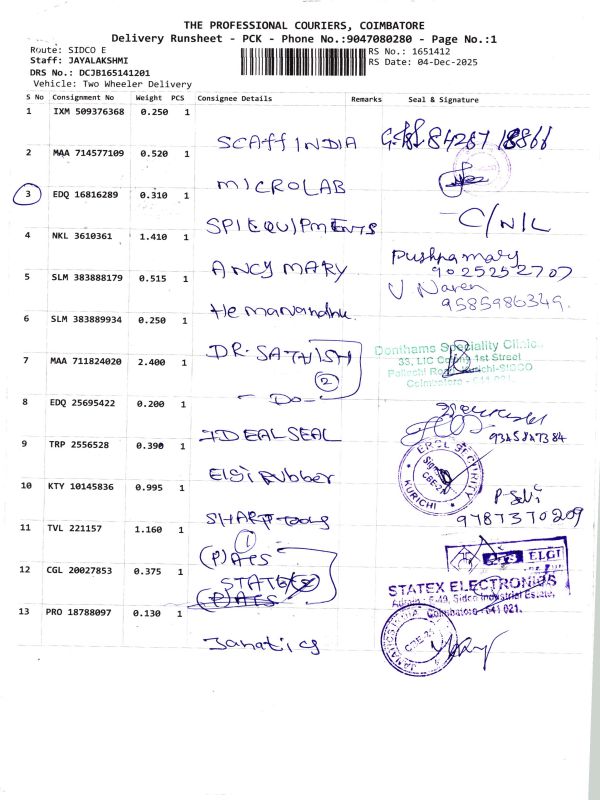 THE PROFESSIONAL COURIERS, COIMBATORE
Delivery Runsheet - PCK - Phone No.:9047080280 - Page No.:1
Route: SIDCO E
Staff: JAYALAKSHMI
DRS No.: DCJB165141201
Vehicle: Two Wheeler Delivery
RS No.: 1651412
RS Date: 04-Dec-2025
S No Consignment No Weight PCS Consignee Details Remarks Seal & Signature
1 IXM 509376368 0.250 1 SCAFF INDIA 84287 18866
2 MAA 714577109 0.520 1 MICROLAB
3 EDQ 16816289 0.310 1 SPI EQUIPMENTS C/NIL
4 NKL 3610361 1.410 1 ANCY MARY Pushpa mary 9025252707
5 SLM 383888179 0.515 1 V Naren 9585986349.
6 SLM 383889934 0.250 1 DR. SATHISH
Donthams Speciality Clinic
33, LIC Colony 1st Street
Pollachi Road, Kurichi-SIDCO
Coimbatore - 641 021.
2
7 MAA 711824020 2.400 1 - Do -
8 EDQ 25695422 0.200 1 IDEAL SEAL 9345847384
9 TRP 2556528 0.390 1 Elgi Rubber
SECURITY KURICHI
CBE-21
10 KTY 10145836 0.995 1 SHARP Tools P. Selvi 9787370209
11 TVL 221157 1.160 1 (P) ATS
1
ATS ELGI
12 CGL 20027853 0.375 1 STATEX (P) ATS
STATEX ELECTRONICS
Admin : E-49, Sidco Industrial Estate,
Coimbatore - 641 021.
13 PRO 18788097 0.130 1 Janatics
JANATICS INDIA
CBE-21